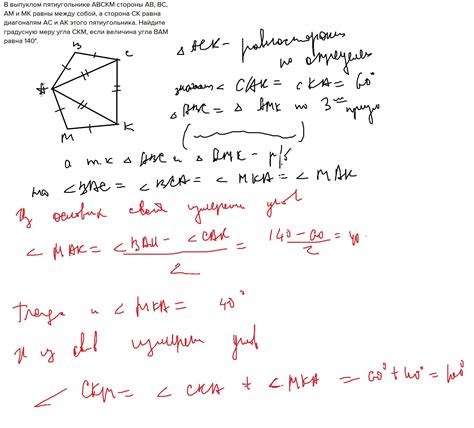 В выпуклом пятиугольнике АВСКМ стороны АВ, ВС,
АМ и МК равны между собой, а сторона СК равна
диагоналям АС и АК этого пятиугольника. Найдите
градусную меру угла СКМ, если величина угла ВАМ
равна 140°.
B
C
A
M
K
△ ACK - равносторон
по определен
значит < CAK = < CKA = 60°
△ ABC = △ AMK по 3
призн
а т.к △ ABC и △ AMK - р/б
то < BAC = < BCA = < MKA = < MAK
Из основн свой измерен углов
< MAK = < BAM - < CAK / 2 = 140 - 60 / 2 = 40
Тогда и < MKA = 40°
и из свой измерен углов
< CKM = < CKA + < MKA = 60° + 40° = 100°